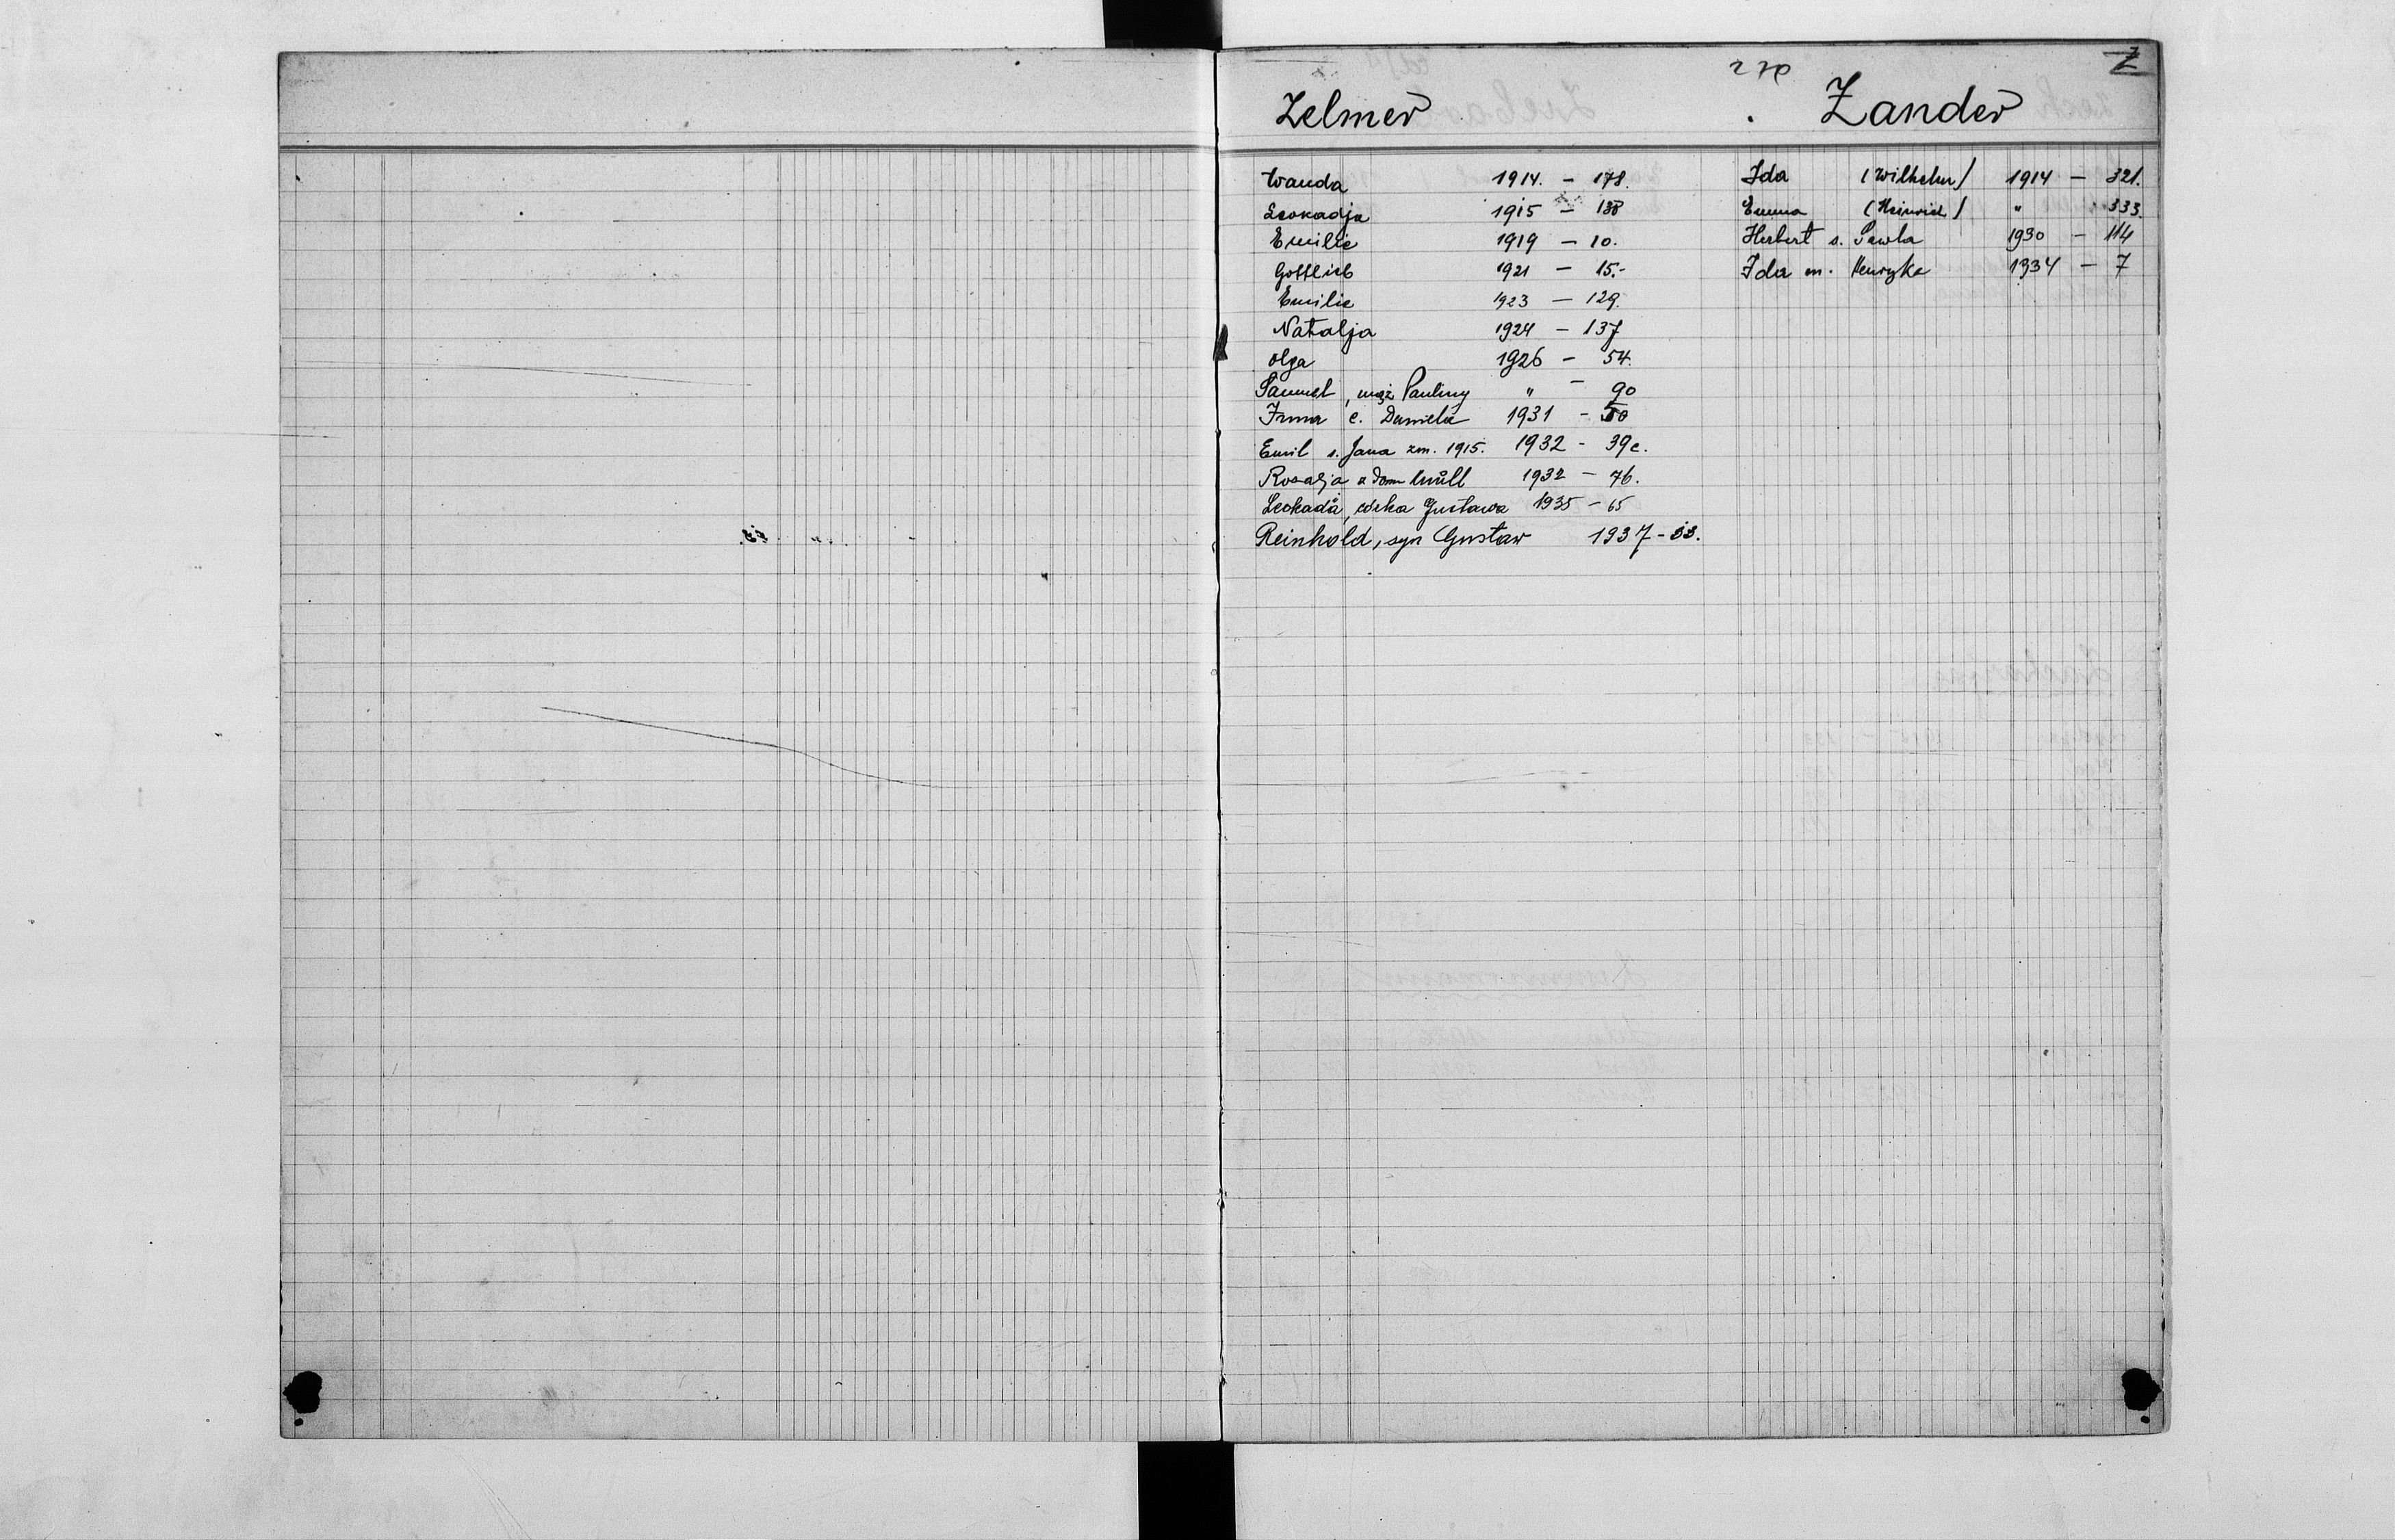 Z
Zelmer
Wanda 1914. – 178.
Leokadja 1915 – 138
Emilie 1919 – 10.
Gottlieb 1921 – 15.-
Emilie 1923 – 129.
Natalja 1924 – 137
Olga 1926 – 54.
Samuel, mąż Pauliny " – 90
Irma c. Daniela 1931 – 50
Emil s. Jana zm. 1915. 1932 – 39c.
Rosalja z dom 1932 – 76.
Leokada, córka Gustawa 1935 – 65
Reinhold, syn Gustaw 1937 – 33.
270
Zander
Ida (Wilhelm) 1914 – 321.
Emma (Heinrich) " 333.
Herbert s. Pawła 1930 – 114
Ida m. Henryka 1934 – 7